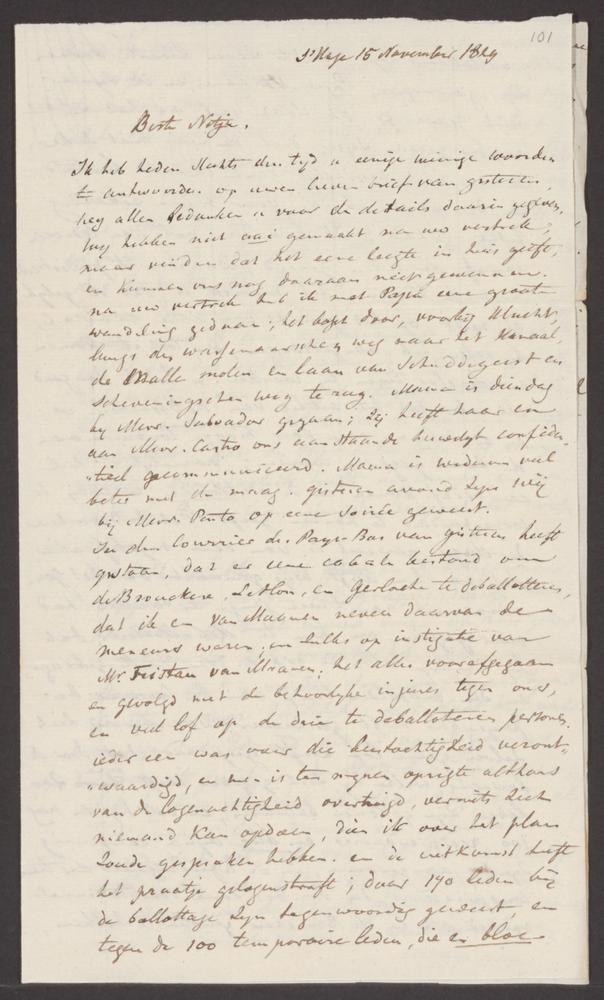 101
s'Hage 15 November 1829
Beste Netje.
Ik heb heden slechts den tijd u eenige weinige woorden
te antwoorden op uwen lieven brief van gisteren,
zeg allen bedanken u voor de details daarin gegeven,
wij hebben niet gemaakt na uw vertrek,
maar vinden dat het eene leegte in huis geeft,
en kunnen ons nog daaraan niet gewennen.
na uw vertrek heb ik met Papa eene groote
wandeling gedaan; het door, voorbij
langs den wassenaarschen weg naar het Kanaal,
de Malle molen en laan van Schuddegeest en
Scheveningschen weg terug. Mama is dingdag
bij Mevr. Salvador gegaan; Zij heeft haar en
aan Mevr. Castro ons aanstaande huwelijk confiden-
tieel gecommuniceerd. Mama is wederom veel
beter met de maag. gisteren avond zijn wij
bij Mevr. Pinto op eene Soirée geweest.
In den Courrier des Pays-Bas van gisteren heeft
gestaan, dat er eene cabale bestond om
de Brouckere, Lehon, en Gerlache te deballotteren,
dat ik en van Maanen neven daarvan de
meneurs waren, en zulks op instigatie van
Mr. Tristan van Maanen; het alles voorafgegaan
en gevolgd met de behoorlyke injures tegen ons,
en veel lof op de drie te deballoteren persones.
ieder een was over die veront-
waardigd, en men is ten mynen opzigte althans
van de logenachtigheid overtuigd, vermits zich
niemand kan opdoen, dien ik over het plan
zoude gesproken hebben. en de uitkomst heeft
het praatje gelogenstraft; daar 190 leden bij
de ballottage zyn tegenwoordig geweest, en
tegen de 100 temporaire leden, die en bloc